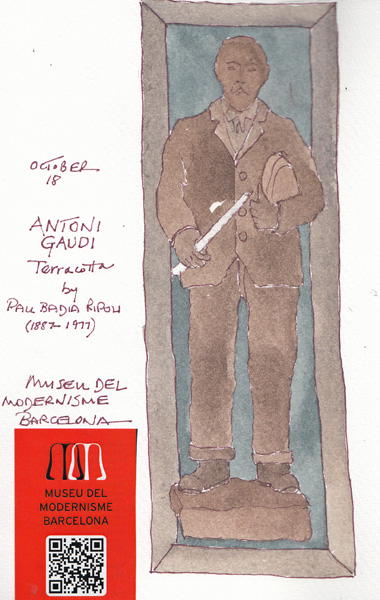 OCTOBER
18
ANTONI
GAUDI
Terracotta
by
PAU BADIA RIPOLL
(1887-1977)
MUSEU DEL
MODERNISME
BARCELONA
MUSEU DEL
MODERNISME
BARCELONA